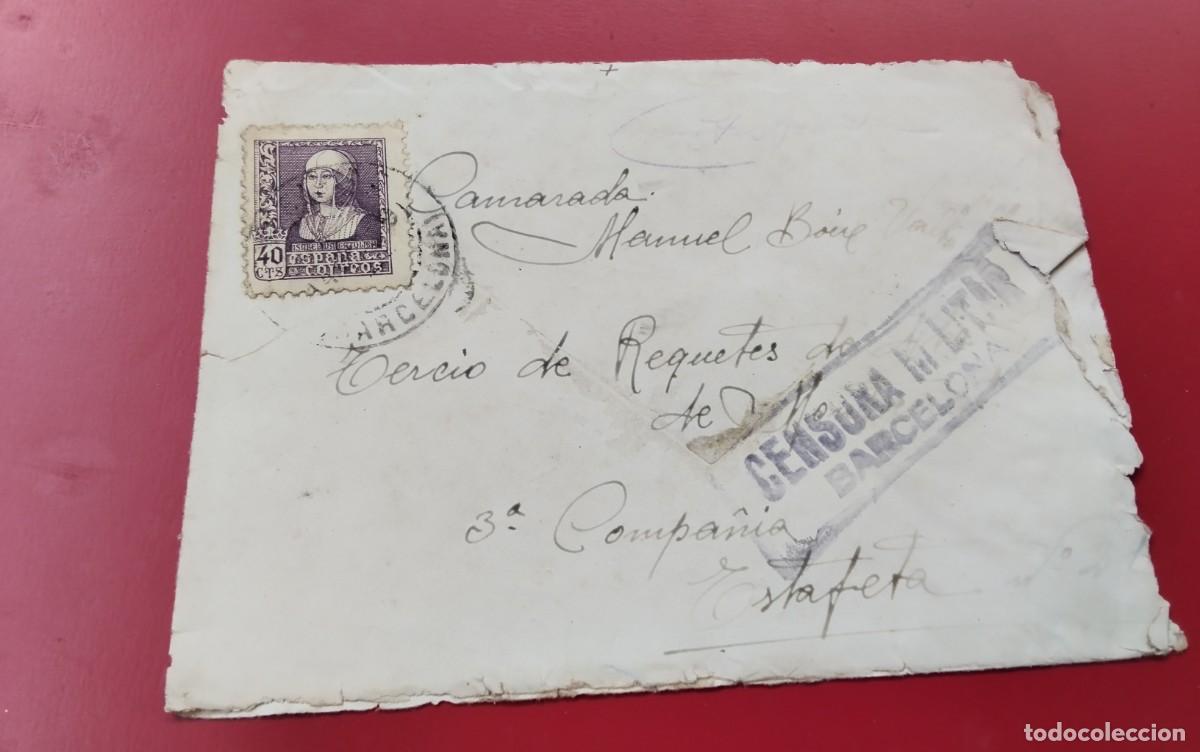 Camarada
Manuel
40 CTS
ISABEL LA CATOLICA
españa
correos
BARCELONA
Tercio de Requetes de
de
CENSURA MILITAR
BARCELONA
3ª Compañia
Estafeta
todocoleccion